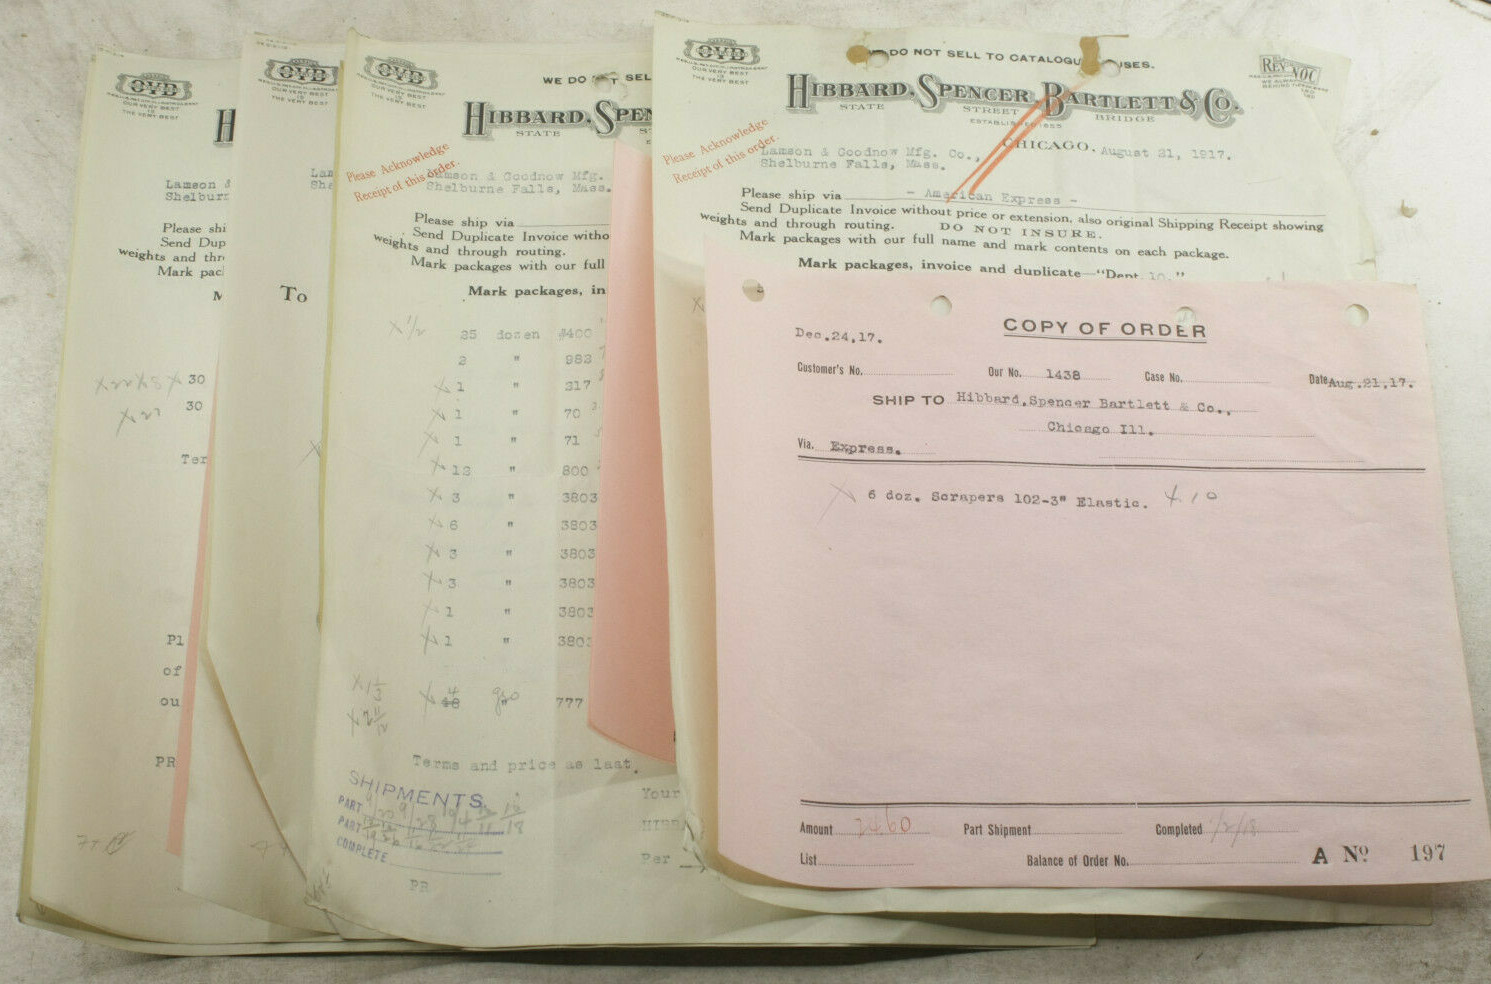 OVB
OUR VERY BEST
IS
THE VERY BEST
H
Lamson &
Shelburn
Please shi
Send Dup
weights and thr
Mark pac
M
30
30
Ter
Pl
of
ou
PR
OVB
OUR VERY BEST
IS
THE VERY BEST
Lam
She
To
OVB
OUR VERY BEST
IS
THE VERY BEST
WE DO NOT SEL
HIBBARD, SPEN
STATE
Please Acknowledge
Receipt of this order.
Lamson & Goodnow Mfg.
Shelburne Falls, Mass.
Please ship via
Send Duplicate Invoice witho
weights and through routing.
Mark packages with our full
Mark packages, in
x 1/2 25 dozen #400
2 " 982
x 1 " 217
x 1 " 70
x 1 " 71
x 12 " 800
x 3 " 3803
x 6 " 3803
x 3 " 3803
x 3 " 3803
x 1 " 3803
x 1 " 380
x 1 1/3
x 4 gro
48 " 777
Terms and price as last.
Your
HIBB
Per
SHIPMENTS
PART
PART
COMPLETE
PR
OVB
OUR VERY BEST
IS
THE VERY BEST
WE DO NOT SELL TO CATALOGUE HOUSES.
REV-NOC
HIBBARD, SPENCER, BARTLETT & CO.
STATE STREET BRIDGE
ESTABLISHED 1855
Please Acknowledge
Receipt of this order.
CHICAGO, August 21, 1917.
Lamson & Goodnow Mfg. Co.,
Shelburne Falls, Mass.
Please ship via - American Express -
Send Duplicate Invoice without price or extension, also original Shipping Receipt showing
weights and through routing. DO NOT INSURE.
Mark packages with our full name and mark contents on each package.
Mark packages, invoice and duplicate—"Dept. 10."
COPY OF ORDER
Dec.24,17.
Customer's No. Our No. 1438 Case No. Date Aug.21,17.
SHIP TO Hibbard,Spencer Bartlett & Co.,
Chicago Ill.
Via. Express.
x 6 doz. Scrapers 102-3" Elastic. 4.10
Amount 2460 Part Shipment Completed 1/2/18
List Balance of Order No. A No 197